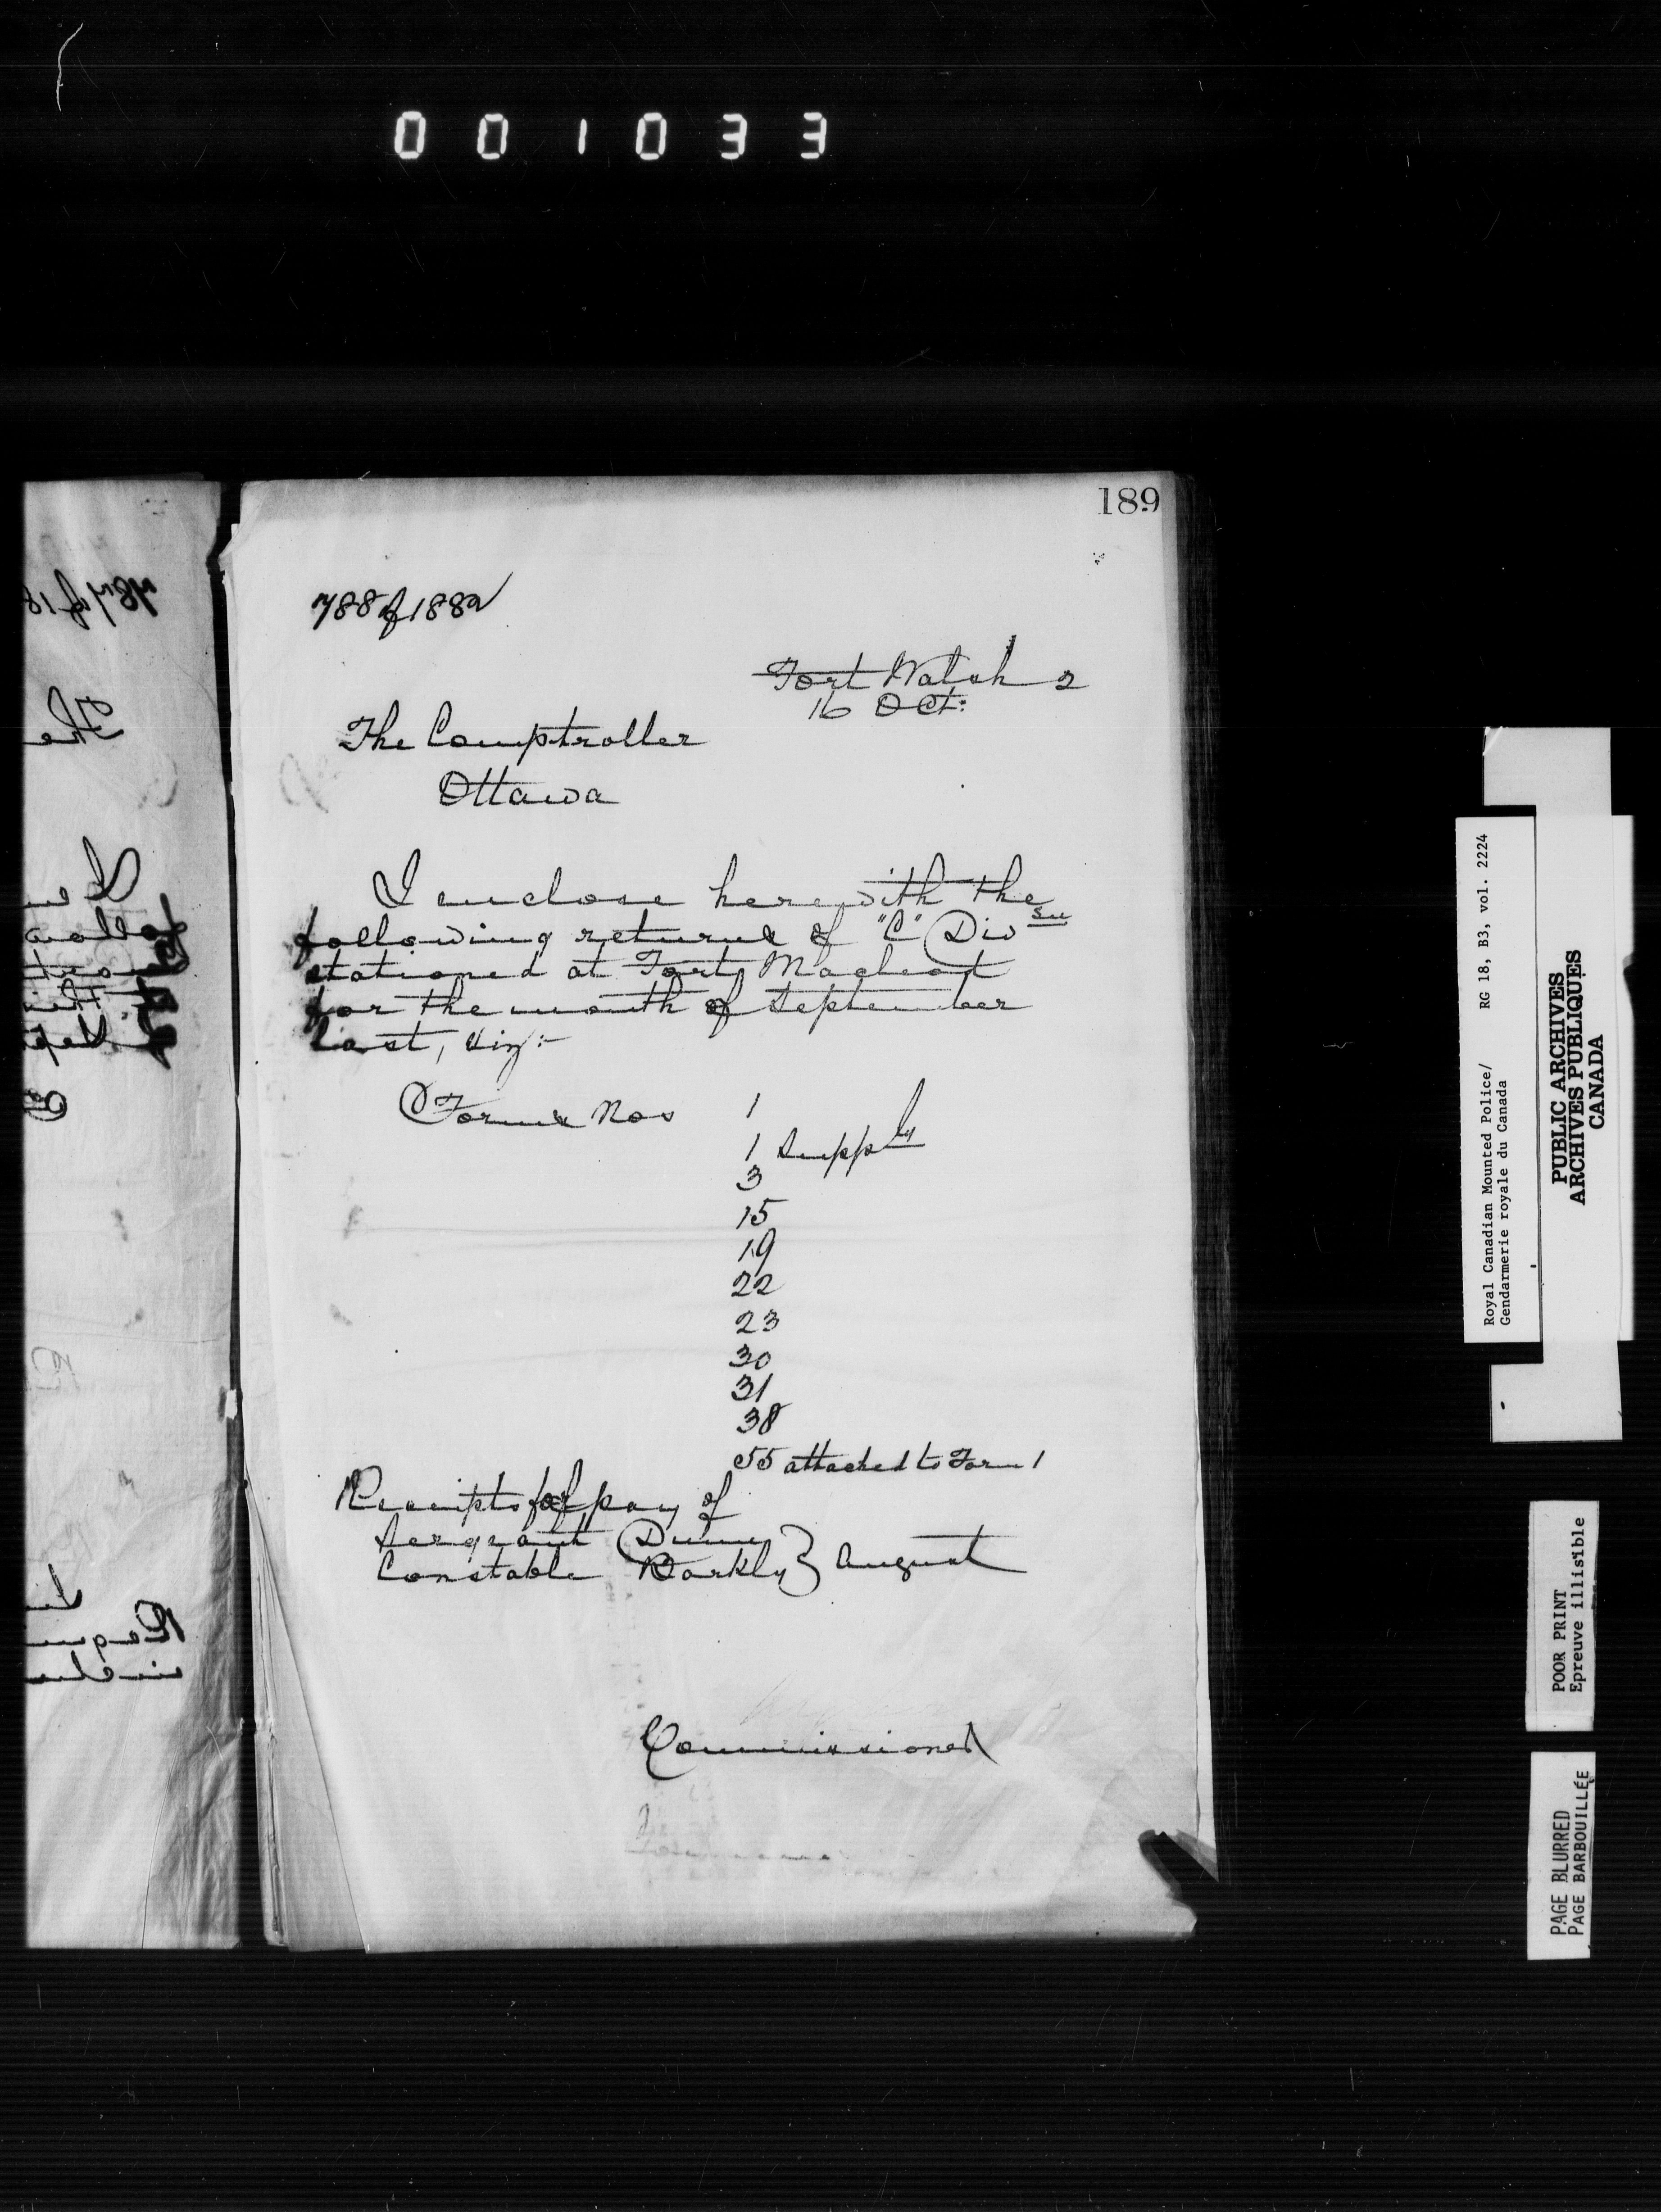 001033
189
788 of 1882
Fort Walsh 2
16 Oct:
The Comptroller
Ottawa
I enclose herewith the
following returns of "C" Div
stationed at Fort Macleod
for the month of September
last, viz:-
Forms Nos 1
1 Supply
3
15
19
22
23
30
31
38
55 attached to Form 1
Receipts for pay of
Sergeant Dunne
Constable Barkly } August
Commissioner
Royal Canadian Mounted Police/ RG 18, B3, vol. 2224
Gendarmerie royale du Canada
PUBLIC ARCHIVES
ARCHIVES PUBLIQUES
CANADA
POOR PRINT
Epreuve illisible
PAGE BLURRED
PAGE BARBOUILLÉE